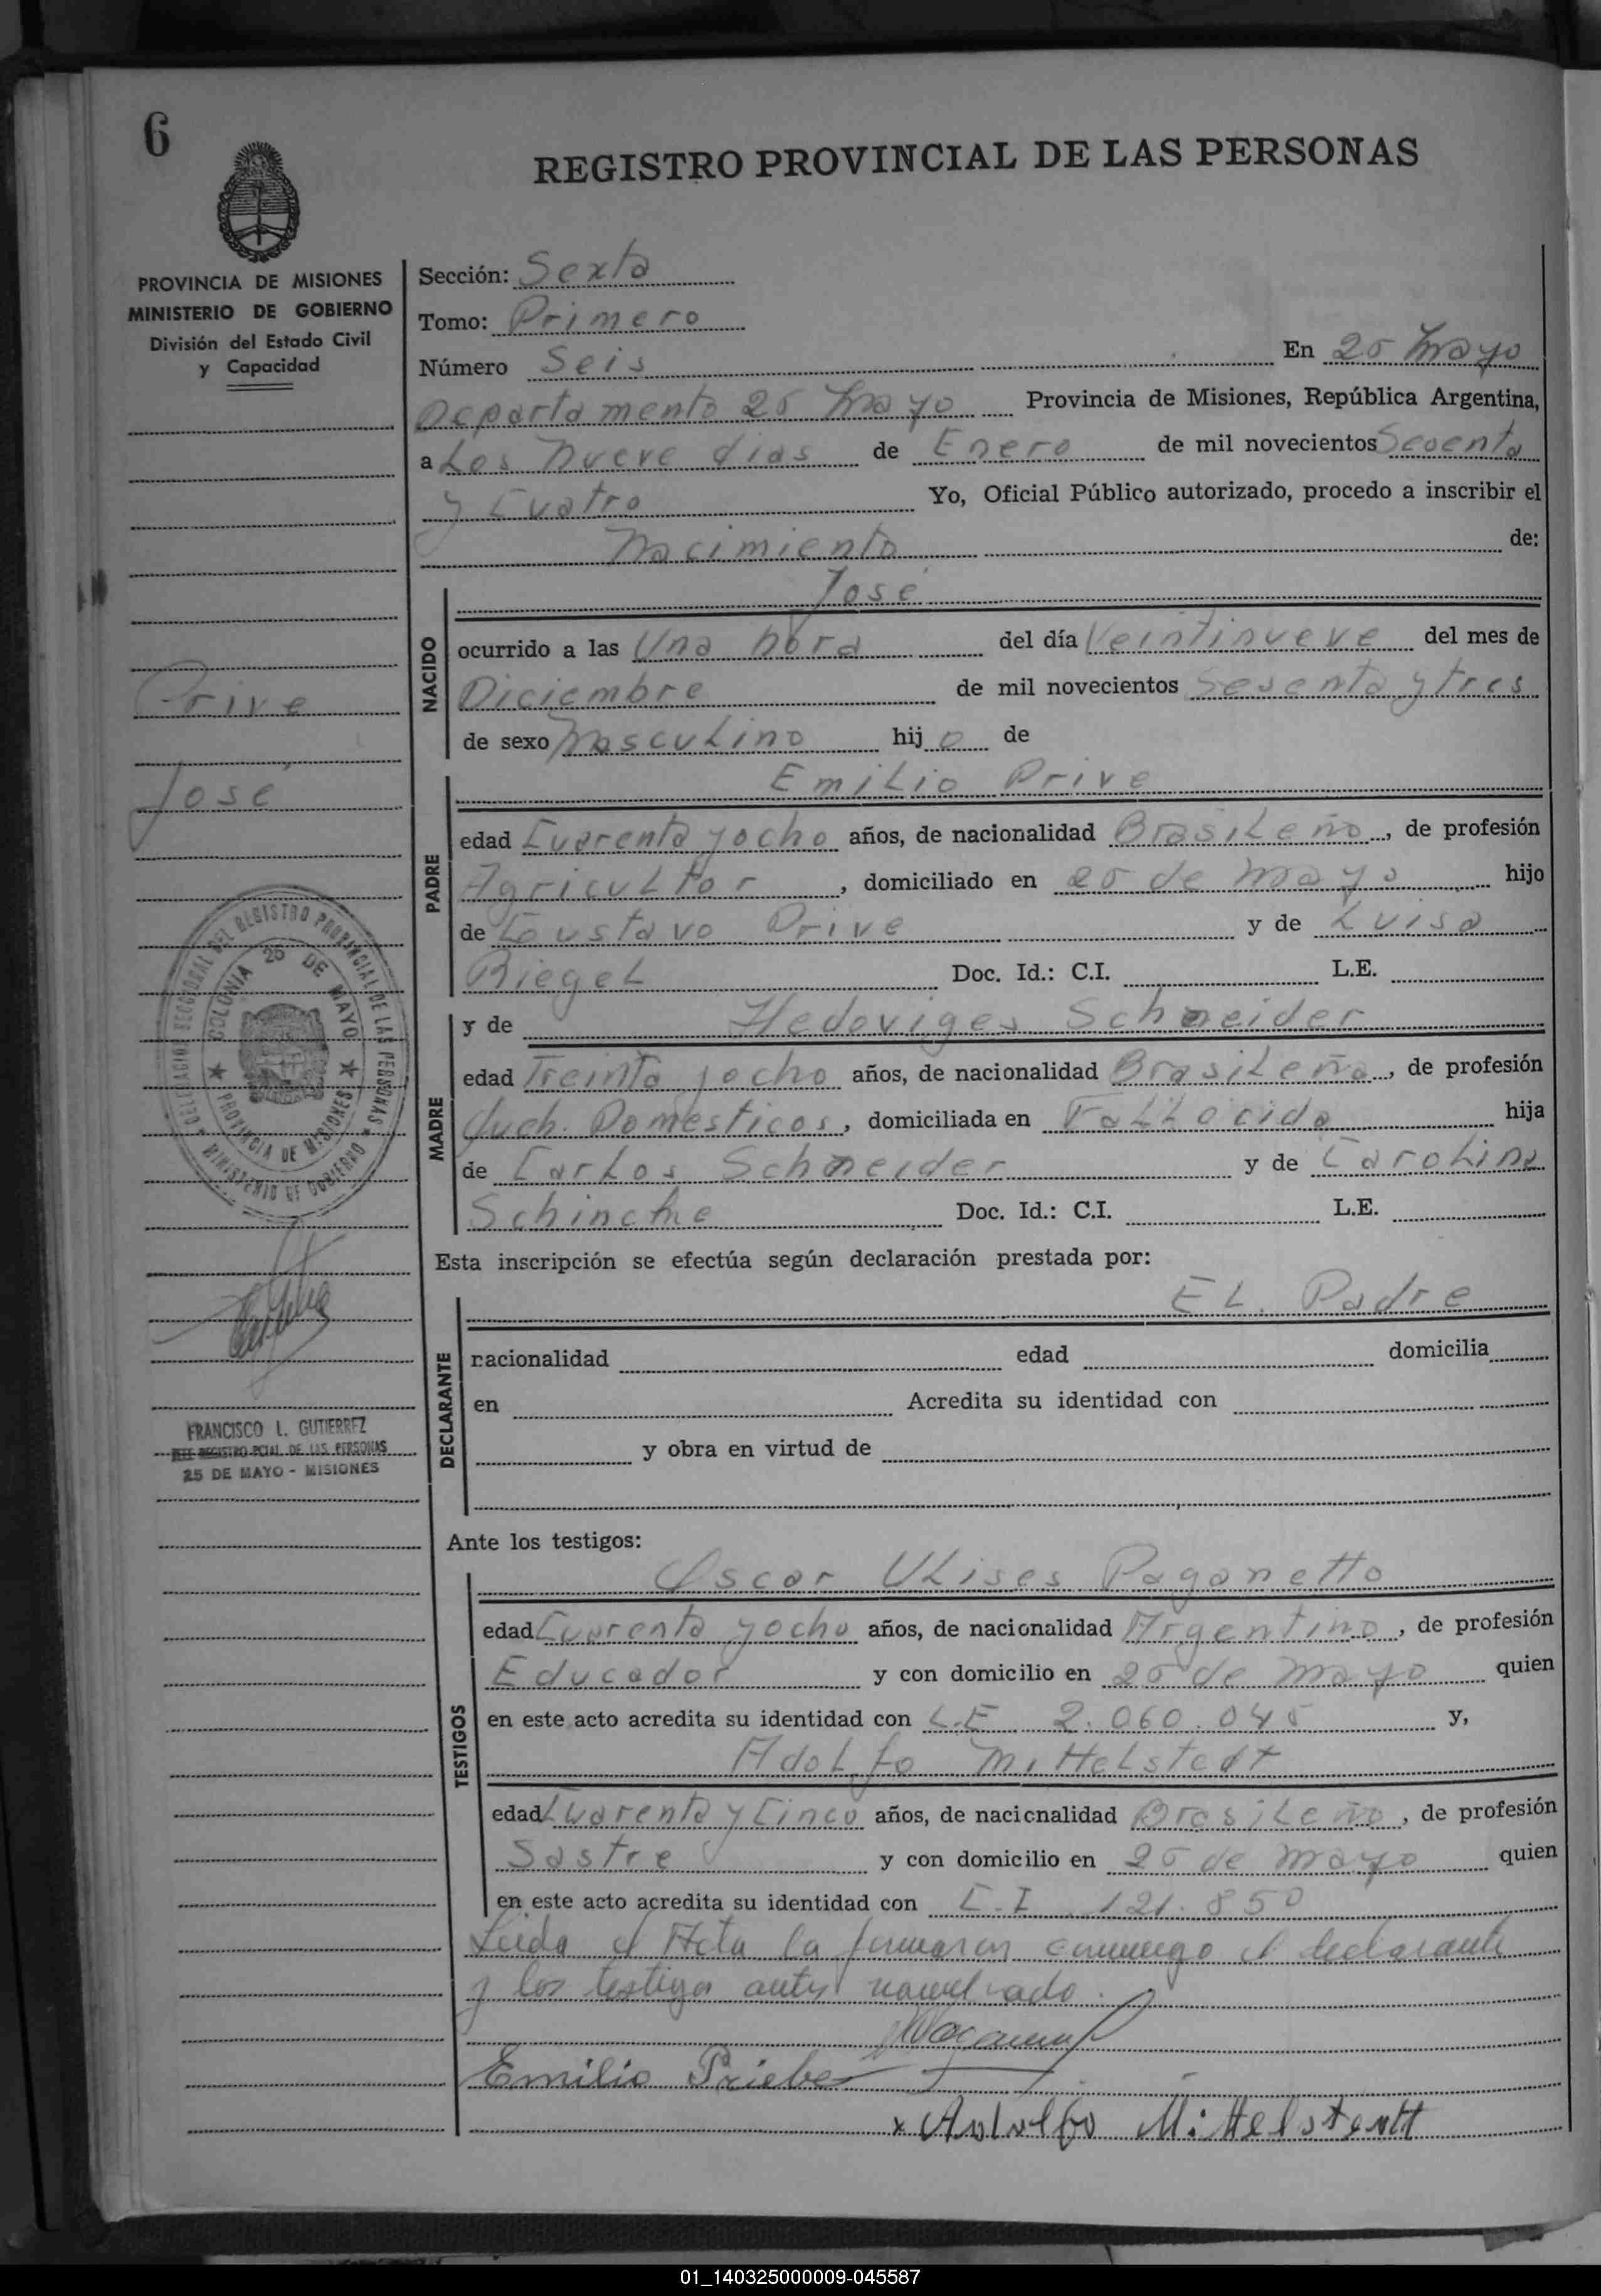 6
REGISTRO PROVINCIAL DE LAS PERSONAS
PROVINCIA DE MISIONES
MINISTERIO DE GOBIERNO
División del Estado Civil
y Capacidad
Sección: Sexta
Tomo: Primero
Número Seis En 25 Mayo
Departamento 25 Mayo Provincia de Misiones, República Argentina,
a Los Nueve dias de Enero de mil novecientos Setenta
y Cuatro Yo, Oficial Público autorizado, procedo a inscribir el
Nacimiento de:
NACIDO
José
ocurrido a las Una hora del día Veintinueve del mes de
Diciembre de mil novecientos Sesenta y tres
de sexo Masculino hijo de
Prive
José
PADRE
Emilio Prive
edad Cuarenta y ocho años, de nacionalidad Brasileño, de profesión
Agricultor, domiciliado en 25 de Mayo hijo
de Gustavo Prive y de Luisa
Riegel Doc. Id.: C.I. L.E.
MADRE
y de Hedeviges Schneider
edad Treinta y ocho años, de nacionalidad Brasileña, de profesión
Queh. Domesticos, domiciliada en Fallecida hija
de Carlos Schneider y de Carolina
Schincke Doc. Id.: C.I. L.E.
DELEGACION SECCIONAL DEL REGISTRO PROVINCIAL DE LAS PERSONAS
★ MINISTERIO DE GOBIERNO ★
COLONIA 25 DE MAYO
★ PROVINCIA DE MISIONES ★
Esta inscripción se efectúa según declaración prestada por:
DECLARANTE
EL Padre
nacionalidad edad domicilia
en Acredita su identidad con
y obra en virtud de
FRANCISCO L. GUTIERREZ
JEFE REGISTRO PCIAL. DE LAS PERSONAS
25 DE MAYO - MISIONES
Ante los testigos:
TESTIGOS
Oscar Ulises Paganetto
edad Cuarenta y ocho años, de nacionalidad Argentino, de profesión
Educador y con domicilio en 25 de Mayo quien
en este acto acredita su identidad con L.E 2.060.045 y,
Adolfo Mittelstedt
edad Cuarenta y Cinco años, de nacionalidad Brasileño, de profesión
Sastre y con domicilio en 25 de Mayo quien
en este acto acredita su identidad con C.I 121.850
Leida el Acta la firmaron conmigo el declarante
y los testigos antes nombrado.
Emilio Priebe
x Adolfo Mittelstentt
01_140325000009-045587